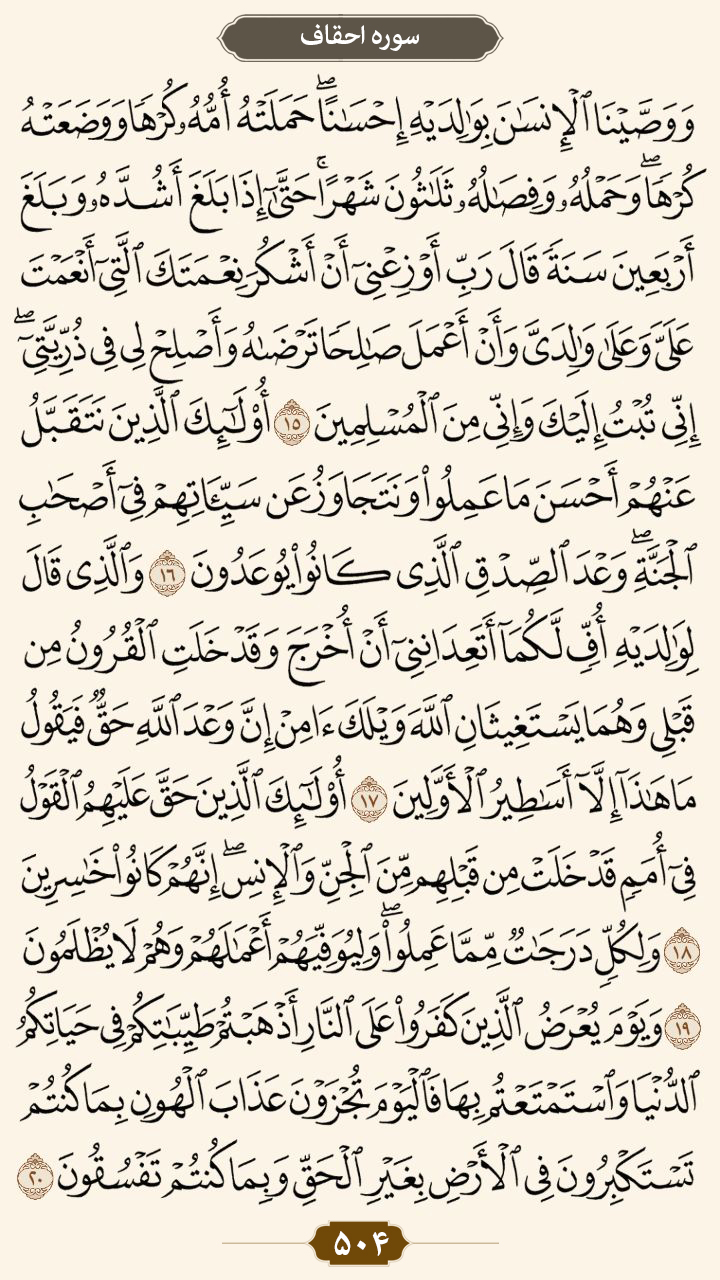 سوره احقاف
وَوَصَّيْنَا ٱلْإِنسَٰنَ بِوَٰلِدَيْهِ إِحْسَٰنًاۖ حَمَلَتْهُ أُمُّهُۥ كُرْهًا وَوَضَعَتْهُ
كُرْهًاۖ وَحَمْلُهُۥ وَفِصَٰلُهُۥ ثَلَٰثُونَ شَهْرًاۚ حَتَّىٰٓ إِذَا بَلَغَ أَشُدَّهُۥ وَبَلَغَ
أَرْبَعِينَ سَنَةً قَالَ رَبِّ أَوْزِعْنِىٓ أَنْ أَشْكُرَ نِعْمَتَكَ ٱلَّتِىٓ أَنْعَمْتَ
عَلَىَّ وَعَلَىٰ وَٰلِدَىَّ وَأَنْ أَعْمَلَ صَٰلِحًا تَرْضَىٰهُ وَأَصْلِحْ لِى فِى ذُرِّيَّتِىٓۖ
إِنِّى تُبْتُ إِلَيْكَ وَإِنِّى مِنَ ٱلْمُسْلِمِينَ ١٥ أُو۟لَٰٓئِكَ ٱلَّذِينَ نَتَقَبَّلُ
عَنْهُمْ أَحْسَنَ مَا عَمِلُوا۟ وَنَتَجَاوَزُ عَن سَيِّـَٔاتِهِمْ فِىٓ أَصْحَٰبِ
ٱلْجَنَّةِۖ وَعْدَ ٱلصِّدْقِ ٱلَّذِى كَانُوا۟ يُوعَدُونَ ١٦ وَٱلَّذِى قَالَ
لِوَٰلِدَيْهِ أُفٍّ لَّكُمَآ أَتَعِدَانِنِىٓ أَنْ أُخْرَجَ وَقَدْ خَلَتِ ٱلْقُرُونُ مِن
قَبْلِى وَهُمَا يَسْتَغِيثَانِ ٱللَّهَ وَيْلَكَ ءَامِنْ إِنَّ وَعْدَ ٱللَّهِ حَقٌّ فَيَقُولُ
مَا هَٰذَآ إِلَّآ أَسَٰطِيرُ ٱلْأَوَّلِينَ ١٧ أُو۟لَٰٓئِكَ ٱلَّذِينَ حَقَّ عَلَيْهِمُ ٱلْقَوْلُ
فِىٓ أُمَمٍ قَدْ خَلَتْ مِن قَبْلِهِم مِّنَ ٱلْجِنِّ وَٱلْإِنسِۖ إِنَّهُمْ كَانُوا۟ خَٰسِرِينَ
١٨ وَلِكُلٍّ دَرَجَٰتٌ مِّمَّا عَمِلُوا۟ۖ وَلِيُوَفِّيَهُمْ أَعْمَٰلَهُمْ وَهُمْ لَا يُظْلَمُونَ
١٩ وَيَوْمَ يُعْرَضُ ٱلَّذِينَ كَفَرُوا۟ عَلَى ٱلنَّارِ أَذْهَبْتُمْ طَيِّبَٰتِكُمْ فِى حَيَاتِكُمُ
ٱلدُّنْيَا وَٱسْتَمْتَعْتُم بِهَا فَٱلْيَوْمَ تُجْزَوْنَ عَذَابَ ٱلْهُونِ بِمَا كُنتُمْ
تَسْتَكْبِرُونَ فِى ٱلْأَرْضِ بِغَيْرِ ٱلْحَقِّ وَبِمَا كُنتُمْ تَفْسُقُونَ ٢٠
۵۰۴